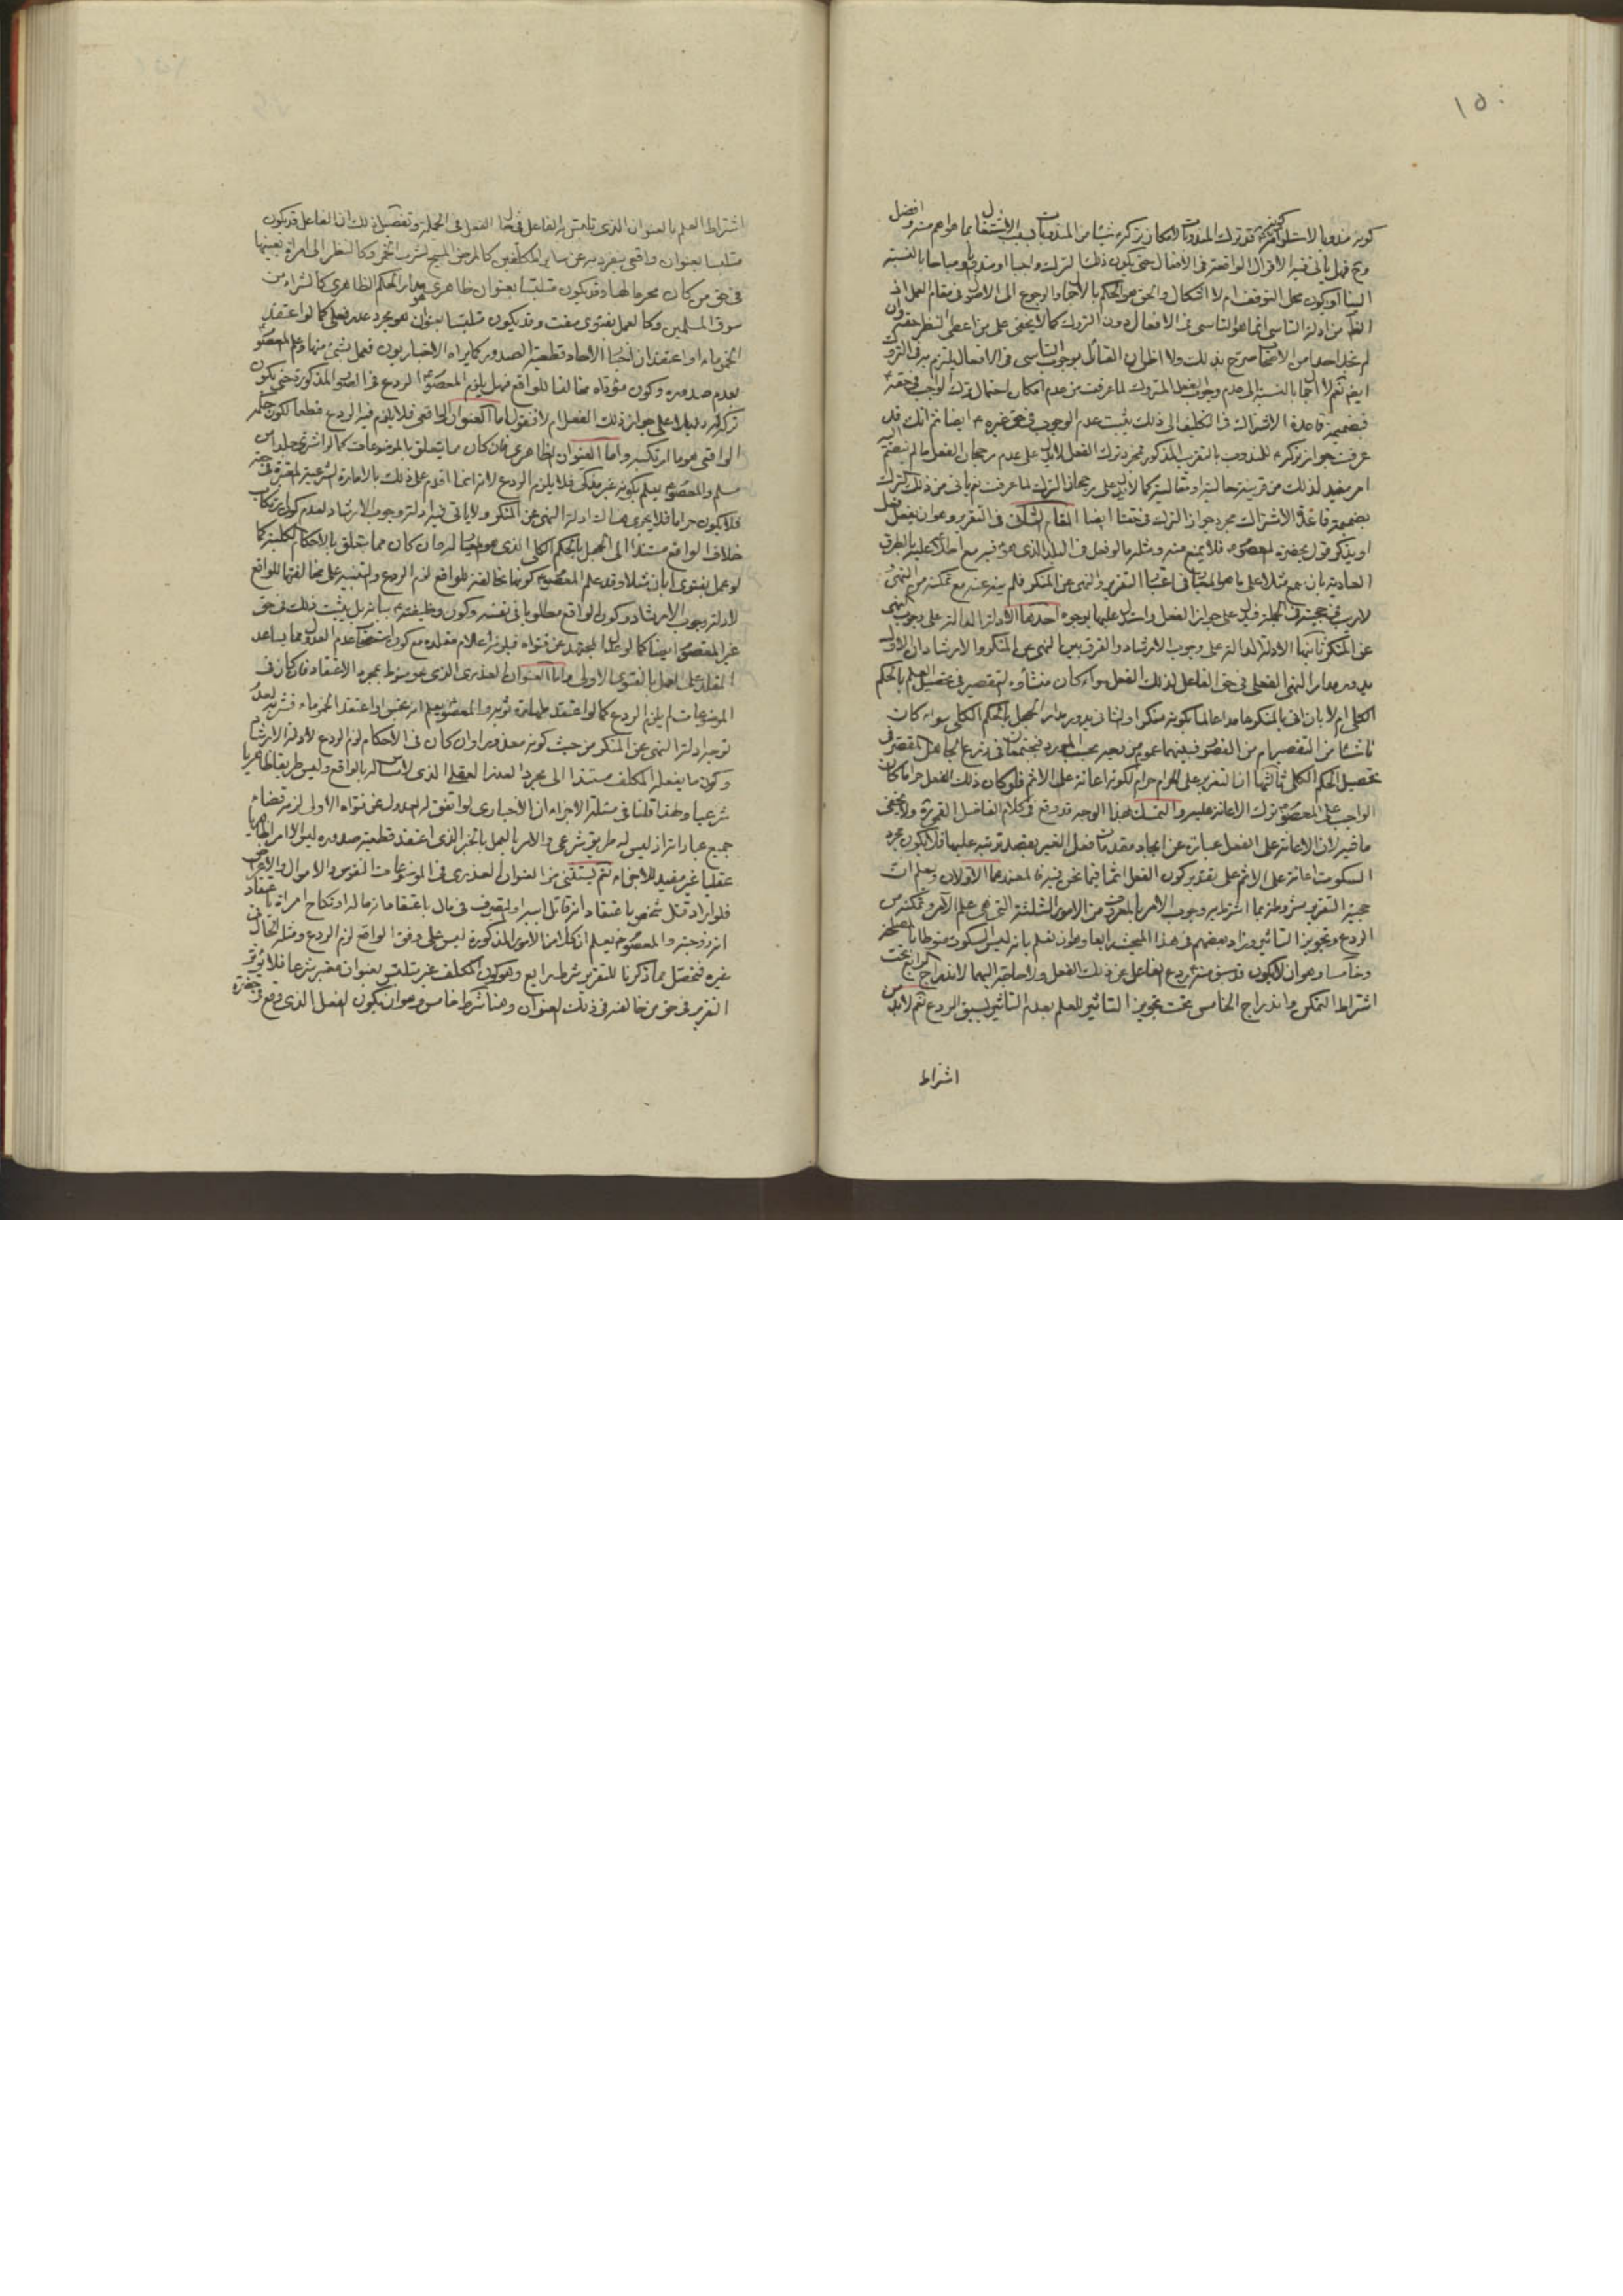 ١٥٠
كونه مندوبا لاستلزامه كونه قد ترك المندوبات لامكان تركه شيئا من المندوبات بسبب الاشتغال بما هو اهم منه وافضل
وح فهل يأتى فيه الاقوال الواقعة فى الافعال حتى يكون ذلك الترك واجبا او مندوبا ومباحا بالنسبة
الينا او يكون محل التوقف ام لا اشكال والحق هو الحكم بالاجتها والرجوع الى الاصول فى مقام العمل اذ
الظ من ادلة التاسى انما هو التاسى فى الافعال دون التروك كما لا يخفى على من اعطى النظر حقه ون
لم نجد احدا من الاصحاب صرح بذلك ولا اظن ان القائل بوجوب التاسى فى الافعال يلتزم به فى التروك
ايض نعم لا اجمال بالنسبة الى عدم وجوب الفعل المتروك لما عرفت من عدم امكان احتمال ترك الواجب فى حقه ع
فبضميمة قاعدة الاشتراك فى التكليف الى ذلك يثبت عدم الوجوب فى حق غيره ع ايضا ثم انك قد
عرفت جواز تركه ع للمندوب بالتقريب المذكور فمجرد ترك الفعل لا يدل على عدم رجحان الفعل ما لم ينضم اليه
امر مفيد لذلك من قرينة حالية او مقالية كما لا يدل على رجحان الترك لما عرفت نعم يأتى من ذلك الترك
بضميمة قاعدة الاشتراك مجرد جواز الترك فى حقنا ايضا المقام الثالث فى التقرير وهو ان يفعل فعل
او يذكر قول بحضرة المعصوم فلا يمنع منه ومثله ما لو فعل فى البلد الذى هو فيه مع اطلاعه عليه بالطرق
العادية بان سمع مثلا على ما هو المعتبر فى اعتبار التقرير والنهى عن المنكر فلم ينه عنه مع تمكنه من النهى
لا ريب فى حجيته فى الجملة فيدل على جواز الفعل واستدل عليها بوجوه احدها الادلة الدالة على وجوب النهى
عن المنكر ثانيها الادلة الدالة على وجوب الارشاد والفرق بين النهى عن المنكر والارشاد ان الاول
يدور مدار النهى الفعلى فى حق الفاعل لذلك الفعل سواء كان منشأه التقصير فى تحصيل العلم بالحكم
الكلى ام لا بان اتى بالمنكر عامدا عالما بكونه منكرا والثانى يدور مدار الجهل بالحكم الكلى سواء كان
ناشئا من التقصير ام من القصور فبينهما عموم من وجه بحسب المورد فيجتمعان فى ردع الجاهل المقصر فى
تحصيل الحكم الكلى ثالثها ان التقرير على الحرام حرام لكونه اعانة على الاثم فلو كان ذلك الفعل حراما كان
الواجب على المعصوم ترك الاعانة عليه والتمسك بهذا الوجه قد وقع فى كلام الفاضل القمى ره ولا يخفى
ما فيه لان الاعانة على الفعل عبارة عن ايجاد مقدمات فعل الغير بقصد ترتبه عليها فلا يكون مجرد
السكوت اعانة على الاثم على تقدير كون الفعل اثما فيما نحن فيه فالمعتمد هما الاولان ويعلم ان
حجية التقرير مشروطة بما اشترط به وجوب الامر بالمعروف من الامور الثلثة التى هى علم الآمر وتمكنه من
الردع وتجويز التأثير وزاد بعضهم فى هذا المبحث رابعا وهو ان نعلم بانه ليس السكوت منوطا بمصلحة
وخامسا وهو ان لا يكون قد سبق منه ردع الفاعل عن ذلك الفعل ولا حاجة اليهما لاندراج الرابع تحت
اشتراط التمكن واندراج الخامس تحت تجويز التأثير للعلم بعدم التأثير بسبق الردع نعم لا بد من
اشتراط
اشتراط العلم بالعنوان الذى تلبس به الفاعل فى حال الفعل فى الجملة وتفصيل ذلك ان الفاعل قد يكون
متلبسا بعنوان واقعى ينفرد به عن سائر المكلفين كالمرض المبيح لشرب الخمر وكالنظر الى امرأة بعينها
فى حق من كان محرما لها وقد يكون متلبسا بعنوان ظاهرى هو مدار الحكم الظاهرى كالشراء من
سوق المسلمين وكالعمل بفتوى مفت وقد يكون متلبسا بعنوان هو مجرد عذر فعلى كما لو اعتقد
الخمر ماء او اعتقد ان اخبار الاحاد قطعية الصدور كما يراه الاخباريون فعمل بشئ منها وعلم المعصوم
بعدم صدوره وكون مؤداه مخالفا للواقع فهل يلزم المعصوم الردع فى الصور المذكورة حتى يكون
تركه له دليلا على جواز ذلك الفعل ام لا فنقول اما العنوان الواقعى فلا يلزم فيه الردع قطعا لكون حكمه
الواقعى هو ما ارتكبه واما العنوان الظاهرى فان كان مما يتعلق بالموضوعات كما لو اشترى جلدا من
مسلم والمعصوم يعلم بكونه غير مذكى فلا يلزم الردع لانه انما اقدم على ذلك بالامارة الشرعية المقررة فى حقه
فلا يكون حراما فلا يجرى هناك ادلة النهى عن المنكر ولا يأتى فيه ادلة وجوب الارشاد لعدم كون ارتكاب
خلاف الواقع مستندا الى الجهل بالحكم الكلى الذى هو المعيار له وان كان مما يتعلق بالاحكام الكلية كما
لو عمل بفتوى ابان مثلا وقد علم المعصوم كونها مخالفة للواقع لزم الردع والتنبيه على مخالفتها للواقع
لادلة وجوب الارشاد وكون الواقع مطلوبا فى نفسه وكون وظيفته ع بيانه بل يثبت ذلك فى حق
غير المعصوم ايضا كما لو عدل المجتهد عن فتواه فيلزم اعلام مقلده مع كون استصحاب عدم العدول مما يساعد
المقلد على العمل بالفتوى الاولى واما العنوان العذرى الذى هو منوط بمجرد الاعتقاد فان كان فى
الموضوعات لم يلزم الردع كما لو اعتقد طهارة ثوبه والمعصوم يعلم انه نجس او اعتقد الخمر ماء فشربه لعدم
توجه ادلة النهى عن المنكر من حيث كونه معذورا وان كان فى الاحكام لزم الردع لادلة الارشاد
وكون ما يفعله المكلف مستندا الى مجرد العذر العقلى الذى لا مساس له بالواقع وليس طريقا ظاهريا
شرعيا ولهذا قلنا فى مسئلة الاجزاء ان الاخبارى لو اتفق له العدول عن فتواه الاولى لزمه قضاء
جميع عباداته اذ ليس له طريق شرعى والامر بالعمل بالخبر الذى اعتقد قطعية صدوره ليس الا امرا ظاهريا
عقليا غير مفيد للاجزاء نعم يستثنى من العنوان العذرى فى الموضوعات النفوس والاموال والاعراض
فلو اراد قتل شخص باعتقاد انه قاتل ابيه او التصرف فى مال باعتقاد انه ماله او نكاح امرأة باعتقاد
انه زوجته والمعصوم يعلم ان كلا من الامور المذكورة ليس على وفق الواقع لزم الردع ومثله الحال فى
غيره فتحصل مما ذكرنا للتقرير شرط رابع وهو كون المكلف غير متلبس بعنوان معتبر شرعا فلا يؤثر
التقرير فى حق من خالفه فى ذلك العنوان وهنا شرط خامس وهو ان يكون الفعل الذى وقع فى حضرة